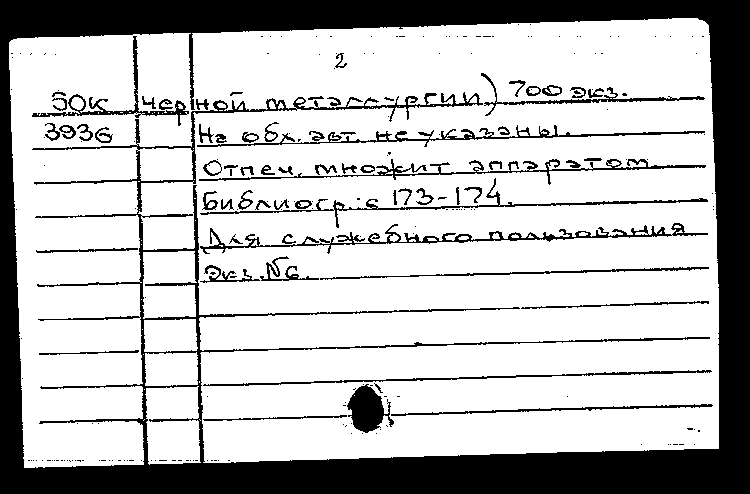 2
50К черной металлургии) 700 экз.
3936 На обл. авт. не указаны.
Отпеч. множит аппаратом.
Библиогр.: с 173-174.
Для служебного пользования
Экз. №6.